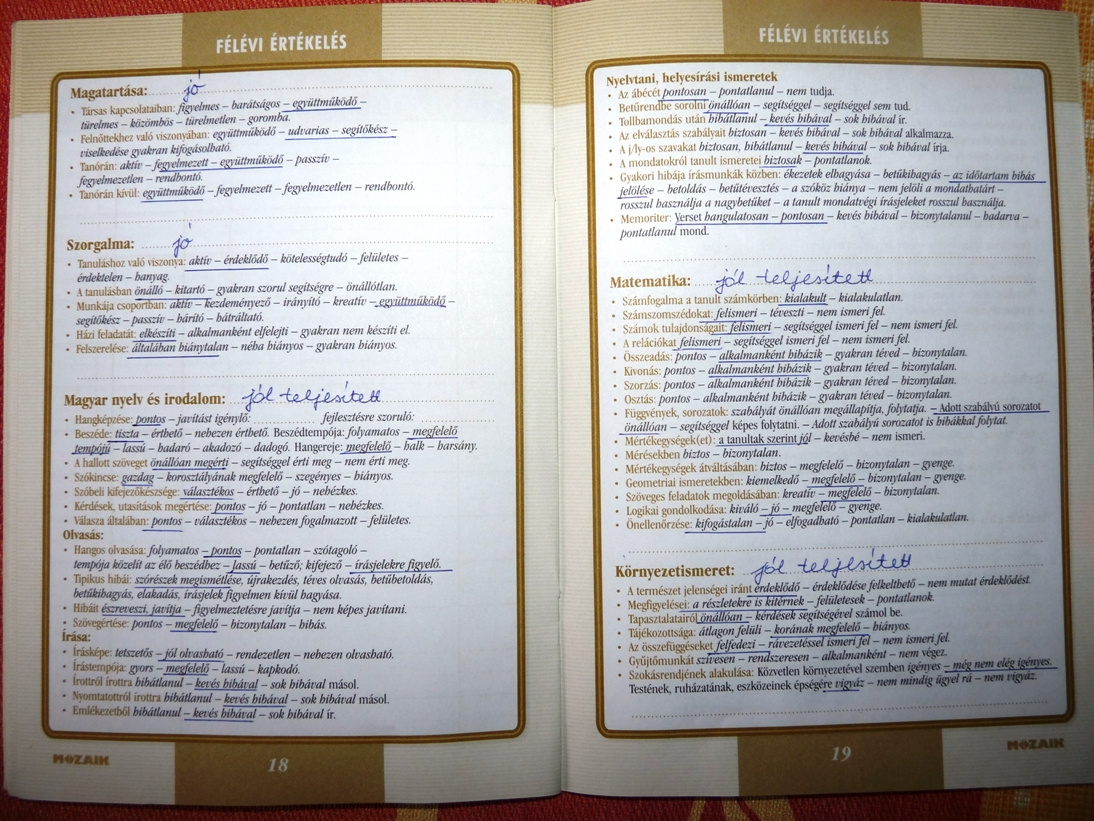 FÉLÉVI ÉRTÉKELÉS
Magatartása: jó
• Társas kapcsolataiban: figyelmes – barátságos – együttműködő –
türelmes – közömbös – türelmetlen – goromba.
• Felnőttekhez való viszonyában: együttműködő – udvarias – segítőkész –
viselkedése gyakran kifogásolható.
• Tanórán: aktív – fegyelmezett – együttműködő – passzív –
fegyelmezetlen – rendbontó.
• Tanórán kívül: együttműködő – fegyelmezett – fegyelmezetlen – rendbontó.
Szorgalma: jó
• Tanuláshoz való viszonya: aktív – érdeklődő – kötelességtudó – felületes –
érdektelen – hanyag.
• A tanulásban önálló – kitartó – gyakran szorul segítségre – önállótlan.
• Munkája csoportban: aktív – kezdeményező – irányító – kreatív – együttműködő –
segítőkész – passzív – bárító – hátráltató.
• Házi feladatát: elkészíti – alkalmanként elfelejti – gyakran nem készíti el.
• Felszerelése: általában hiánytalan – néha hiányos – gyakran hiányos.
Magyar nyelv és irodalom: jól teljesített
• Hangképzése: pontos – javítást igénylő: fejlesztésre szoruló:
• Beszéde: tiszta – érthető – nehezen érthető. Beszédtempója: folyamatos – megfelelő
tempójú – lassú – hadaró – akadozó – dadogó. Hangereje: megfelelő – halk – harsány.
• A hallott szöveget önállóan megérti – segítséggel érti meg – nem érti meg.
• Szókincse: gazdag – korosztályának megfelelő – szegényes – hiányos.
• Szóbeli kifejezőkészsége: választékos – érthető – jó – nehézkes.
• Kérdések, utasítások megértése: pontos – jó – pontatlan – nehézkes.
• Válasza általában: pontos – választékos – nehezen fogalmazott – felületes.
Olvasás:
• Hangos olvasása: folyamatos – pontos – pontatlan – szótagoló –
tempója közelít az élő beszédhez – lassú – betűző; kifejező – írásjelekre figyelő.
• Tipikus hibái: szórészek megismétlése, újrakezdés, téves olvasás, betűbetoldás,
betűkihagyás, elakadás, írásjelek figyelmen kívül hagyása.
• Hibáit észreveszi, javítja – figyelmeztetésre javítja – nem képes javítani.
• Szövegértése: pontos – megfelelő – bizonytalan – hibás.
Írása:
• Írásképe: tetszetős – jól olvasható – rendezetlen – nehezen olvasható.
• Írástempója: gyors – megfelelő – lassú – kapkodó.
• Írottról írottra hibátlanul – kevés hibával – sok hibával másol.
• Nyomtatottról írottra hibátlanul – kevés hibával – sok hibával másol.
• Emlékezetből hibátlanul – kevés hibával – sok hibával ír.
MOZAIK
18
FÉLÉVI ÉRTÉKELÉS
Nyelvtani, helyesírási ismeretek
• Az ábécét pontosan – pontatlanul – nem tudja.
• Betűrendbe sorolni önállóan – segítséggel – segítséggel sem tud.
• Tollbamondás után hibátlanul – kevés hibával – sok hibával ír.
• Az elválasztás szabályait biztosan – kevés hibával – sok hibával alkalmazza.
• A j/ly-os szavakat biztosan, hibátlanul – kevés hibával – sok hibával írja.
• A mondatokról tanult ismeretei biztosak – pontatlanok.
• Gyakori hibája írásmunkák közben: ékezetek elhagyása – betűkihagyás – az időtartam hibás
jelölése – betoldás – betűtévesztés – a szóköz hiánya – nem jelöli a mondathatárt –
rosszul használja a nagybetűket – a tanult mondatvégi írásjeleket rosszul használja.
• Memoriter: Verset hangulatosan – pontosan – kevés hibával – bizonytalanul – hadarva –
pontatlanul mond.
Matematika: jól teljesített
• Számfogalma a tanult számkörben: kialakult – kialakulatlan.
• Számszomszédokat: felismeri – téveszti – nem ismeri fel.
• Számok tulajdonságait: felismeri – segítséggel ismeri fel – nem ismeri fel.
• A relációkat felismeri – segítséggel ismeri fel – nem ismeri fel.
• Összeadás: pontos – alkalmanként hibázik – gyakran téved – bizonytalan.
• Kivonás: pontos – alkalmanként hibázik – gyakran téved – bizonytalan.
• Szorzás: pontos – alkalmanként hibázik – gyakran téved – bizonytalan.
• Osztás: pontos – alkalmanként hibázik – gyakran téved – bizonytalan.
• Függvények, sorozatok: szabályát önállóan megállapítja, folytatja. – Adott szabályú sorozatot
önállóan – segítséggel képes folytatni. – Adott szabályú sorozatot is hibákkal folytat.
• Mértékegységek(et): a tanultak szerint jól – kevésbé – nem ismeri.
• Mérésekben biztos – bizonytalan.
• Mértékegységek átváltásában: biztos – megfelelő – bizonytalan – gyenge.
• Geometriai ismeretekben: kiemelkedő – megfelelő – bizonytalan – gyenge.
• Szöveges feladatok megoldásában: kreatív – megfelelő – bizonytalan.
• Logikai gondolkodása: kiváló – jó – megfelelő – gyenge.
• Önellenőrzése: kifogástalan – jó – elfogadható – pontatlan – kialakulatlan.
Környezetismeret: jól teljesített
• A természet jelenségei iránt érdeklődő – érdeklődése felkelthető – nem mutat érdeklődést.
• Megfigyelései: a részletekre is kitérnek – felületesek – pontatlanok.
• Tapasztalatairól önállóan – kérdések segítségével számol be.
• Tájékozottsága: átlagon felüli – korának megfelelő – hiányos.
• Az összefüggéseket felfedezi – rávezetéssel ismeri fel – nem ismeri fel.
• Gyűjtőmunkát szívesen – rendszeresen – alkalmanként – nem végez.
• Szokásrendjének alakulása: Közvetlen környezetével szemben igényes – még nem elég igényes.
Testének, ruházatának, eszközeinek épségére vigyáz – nem mindig ügyel rá – nem vigyáz.
19
MOZAIK